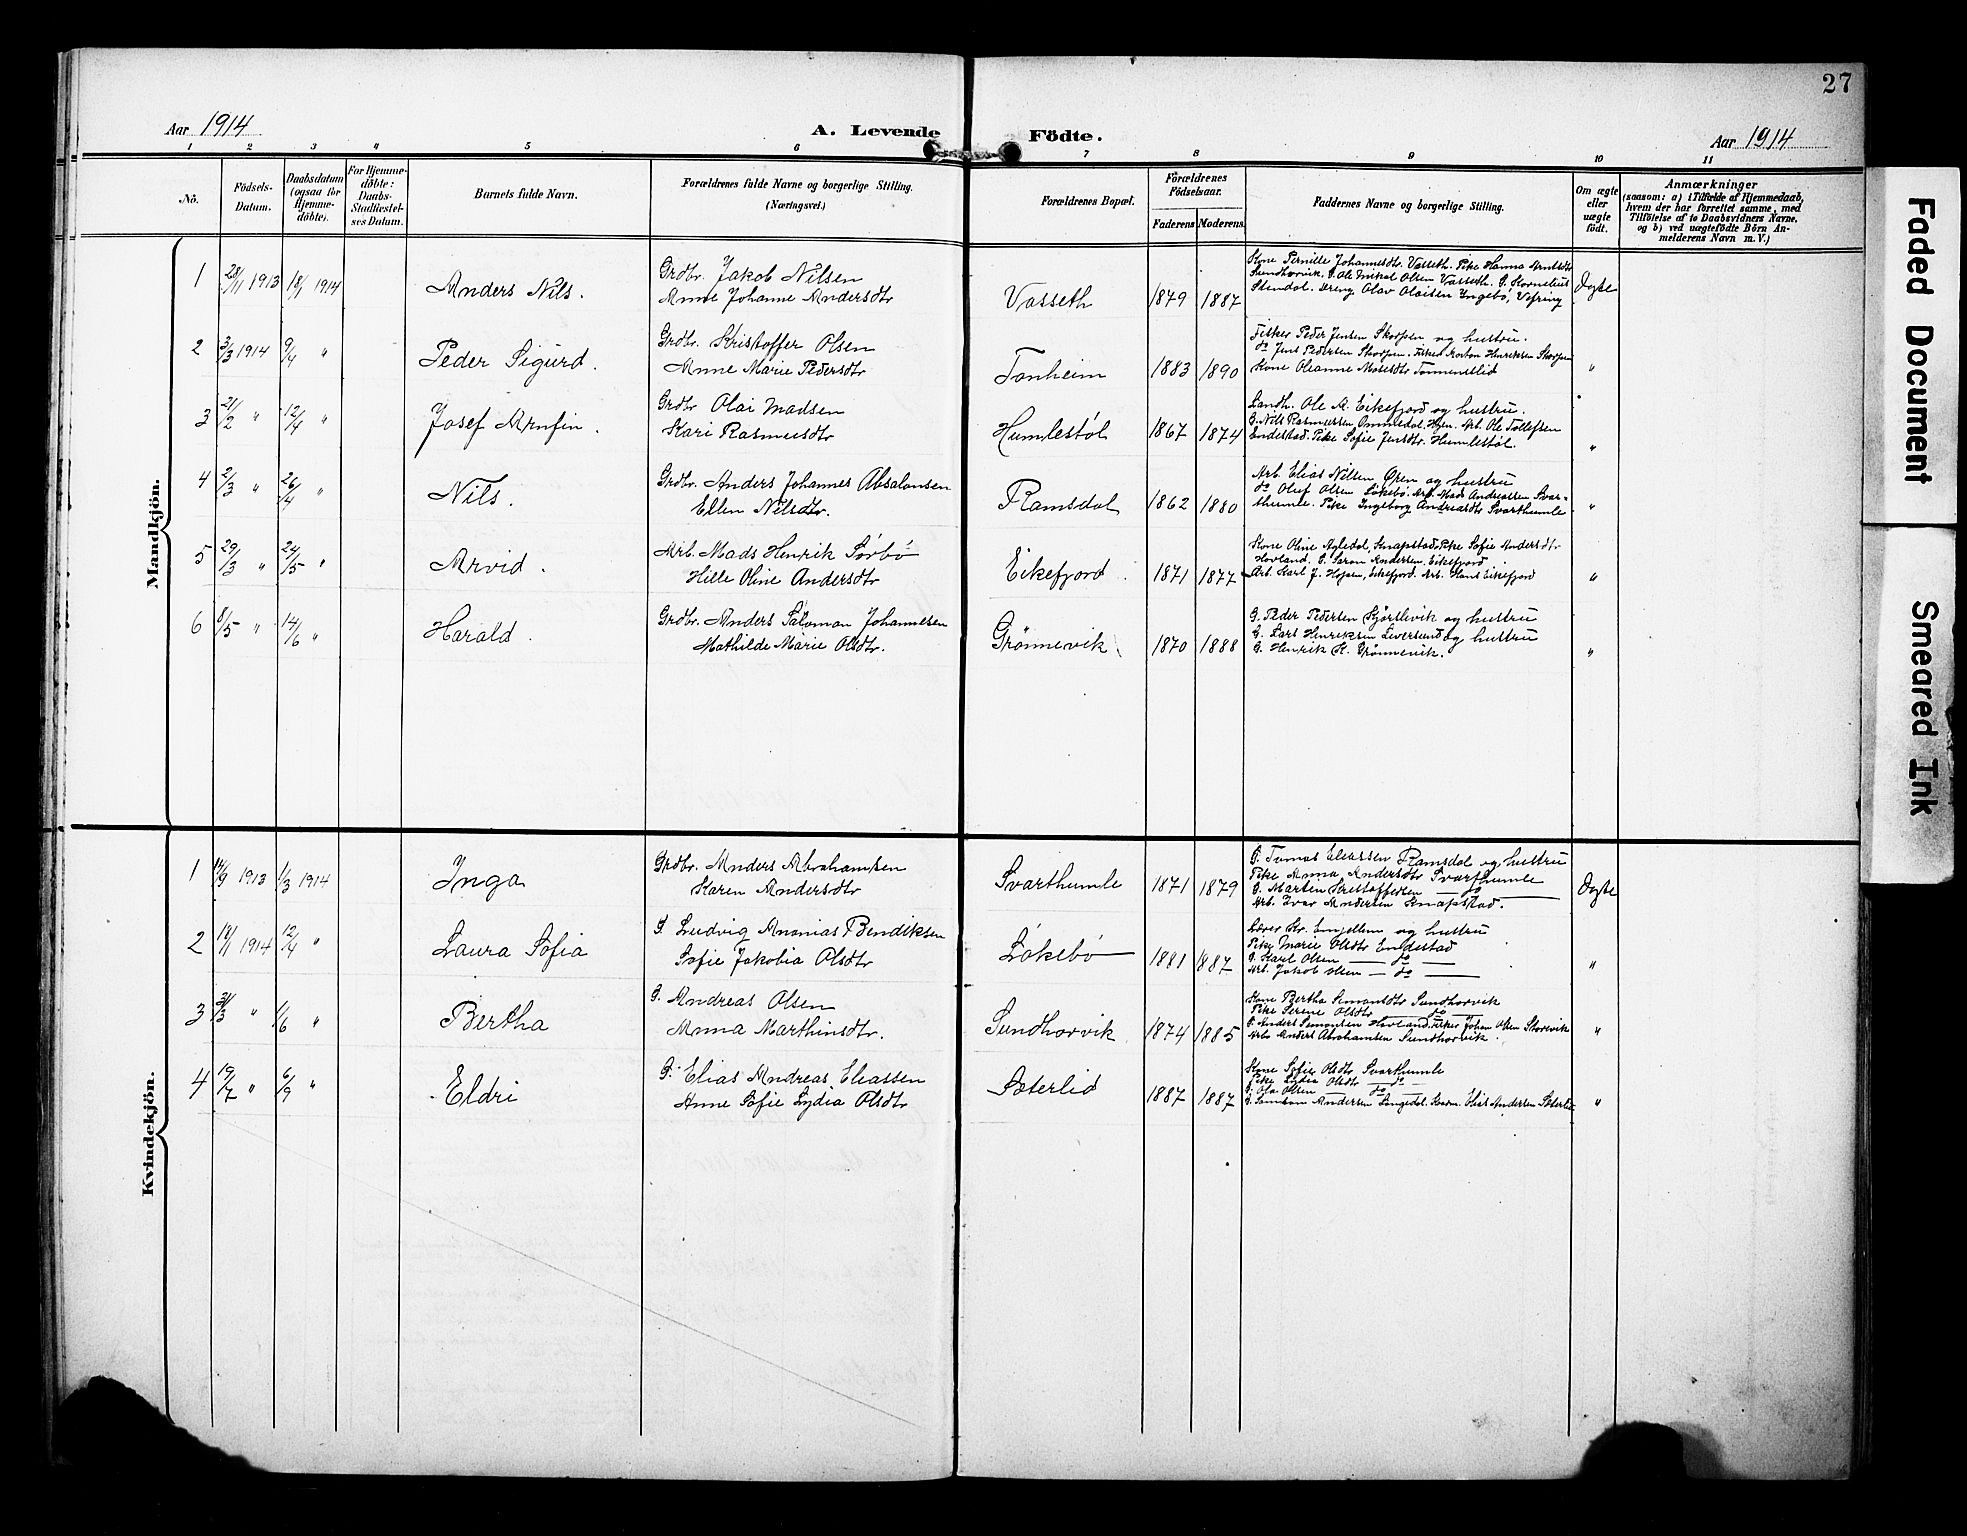 27
Aar 1914
A. Levende Födte.
Aar 1914
1 2 3 4 5 6 7 8 9 10 11
No.
Födsels-Datum.
Daabsdatum (ogsaa for Hjemmedöbte).
For Hjemmedöbte: Daabs-Stadfæstelses Datum.
Barnets fulde Navn.
Forældrenes fulde Navne og borgerlige Stilling. (Næringsvei.)
Forældrenes Bopæl.
Forældrenes Födselsaar.
Faderens Moderens
Faddernes Navne og borgerlige Stilling.
Om ægte eller uægte födt.
Anmærkninger
(saasom: a) i Tilfælde af Hjemmedaab,
hvem der har forrettet samme, med
Tilföielse af to Daabsvidners Navne,
og b) ved uægtefödte Börn An-
melderens Navn m. V.)
Mandkjön.
1 28/11 1913 18/1 1914 Anders Nils.
Grdbr. Jakob Nilsen
Anne Johanne Andersdtr
Vasseth 1879 1887
Kone Pernille Johannesdtr. Vasseth. Pike Hanna Arntsdtr
Sundhorvik. G. Ole Mikal Olsen Vasseth. G. Kornelius
Stendal. Dreng Olav Olaisen Ingebø, Vefring
Ægte
2 3/3 1914 9/4 " Peder Sigurd.
Grdbr. Kristoffer Olsen
Anne Marie Pedersdtr
Tonheim 1883 1890
Fisker Peder Jensen Skorpen og hustru.
do Jens Pedersen Skorpen. Fisker Morten Henriksen Skorpen
Kone Oleanne Mosesdtr Tonnenetlid
"
3 21/2 " 12/4 " Josef Arnfin.
Grdbr Olai Madsen
Kari Rasmusdtr
Humlestøl 1867 1874
Landh. Ole A. Eikefjord og hustru.
G. Nils Rasmussen Ommedal. Hyen. Arb. Ole Tollefsen
Endestad. Pike Sofie Jensdtr. Humlestøl.
"
4 2/3 " 26/4 " Nils.
Grdbr. Anders Johannes Absalonsen
Ellen Nilsdtr.
Ramsdal 1862 1880
Arb. Elias Nilsen Øren og hustru
do Oluf Olsen Løkebø. Arb. Mads Andreassen Svar-
thumle. Pike Ingeborg Andreasdtr Svarthumle
"
5 29/3 " 24/5 " Arvid.
Arb. Mads Henrik Sørbø
Hille Oline Andersdtr
Eikefjord. 1871 1877
Kone Oline Apledal, Knapstad. Pike Sofie Andersdtr
Hovland. G. Saron Andersen Eikefjord
Arb. Karl J. Hopen, Eikefjord. Arb. Hans Eikefjord
"
6 8/5 " 14/6 " Harald.
Grdbr. Anders Salomon Johannesen
Mathilde Marie Olsdtr.
Grønnevik 1870 1888
G. Peder Pedersen Kjørtlevik og hustru
G. Lars Henriksen Liversund og hustru
G. Henrik K. Grønnevik.
"
Kvindekjön.
1 14/9 1913 1/3 1914 Inga
Grdbr. Anders Abrahamsen
Karen Andersdtr
Svarthumle 1871 1879
G. Tomas Eliassen Ramsdal og hustru
Pike Anna Andersdtr Svarthumle
G. Marten Kristoffersen — do —
Arb. Ivar Andersen Knapstad.
Ægte
2 18/1 1914 12/4 " Laura Sofia
G Ludvig Ananias Bendiksen
Sofie Jakobia Olsdtr
Løkebø 1881 1887
Lærer Kr. Engellem og hustru
Pike Marie Olsdtr Endestad
G. Karl Olsen — do —
Arb. Jakob Olsen — do —
"
3 31/3 " 1/6 " Bertha
G. Andreas Olsen
Anna Marthinsdtr.
Sundhorvik 1874 1885
Kone Bertha Simonsdtr Sundhorvik
Pike Serene Olsdtr — do —
G. Anders Simonsen Hovland. Fisker Johan Olsen Storevik
Arb. Anders Abrahamsen Sundhorvik.
"
4 19/7 " 6/9 " Eldri
G. Elias Andreas Eliassen
Anne Sofie Lydia Olsdtr
Sæterlid 1887 1887
Kone Sofie Olsdtr Svarthumle
Pike Lydia Olsdtr — do —
G. Ole Olsen — do —
G. Samson Andersen Langedal. Elias Andersen Sæterlid
"
Faded Document
Smeared Ink